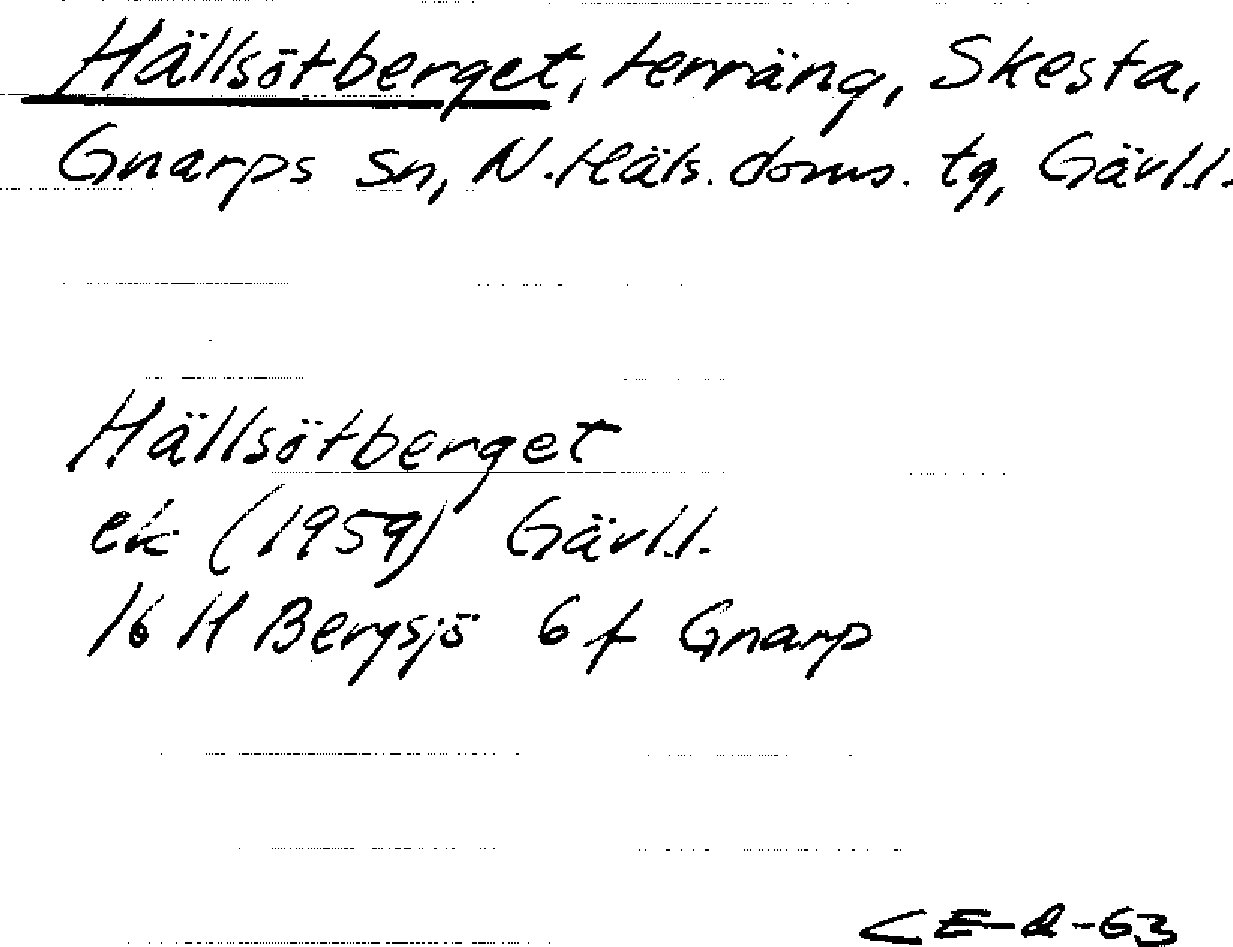 Hällsötberget, terräng, Skesta,
Gnarps sn, N. Häls. doms. tg, Gävl.l.
Hällsötberget
ek (1959) Gävl.l.
16 H Bergsjö 6 f Gnarp